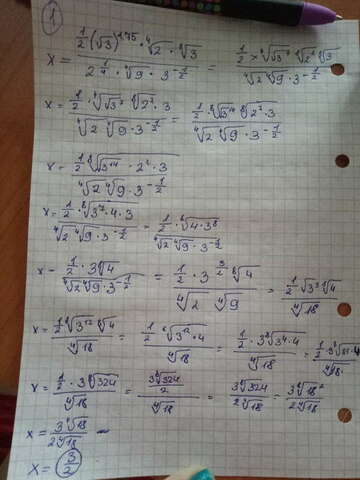 1
x = \frac{\frac{1}{2}(\sqrt{3})^{1,75} \cdot \sqrt[4]{2} \cdot \sqrt[8]{3}}{2^{\frac{1}{4}} \cdot \sqrt[4]{9} \cdot 3^{-\frac{1}{2}}} = \frac{\frac{1}{2} \times \sqrt[4]{\sqrt{3}^7} \cdot \sqrt[8]{2^2} \cdot \sqrt[8]{3}}{\sqrt[4]{2} \sqrt[4]{9} \cdot 3^{-\frac{1}{2}}}
x = \frac{\frac{1}{2} \cdot \sqrt[4]{\sqrt{3}^7} \cdot \sqrt[8]{2^2 \cdot 3}}{\sqrt[4]{2} \cdot \sqrt[4]{9} \cdot 3^{-\frac{1}{2}}} = \frac{\frac{1}{2} \cdot \sqrt[8]{\sqrt{3}^{14}} \cdot \sqrt[8]{2^2 \cdot 3}}{\sqrt[4]{2} \cdot \sqrt[4]{9} \cdot 3^{-\frac{1}{2}}}
x = \frac{\frac{1}{2} \sqrt[8]{\sqrt{3}^{14} \cdot 2^2 \cdot 3}}{\sqrt[4]{2} \sqrt[4]{9} \cdot 3^{-\frac{1}{2}}}
x = \frac{\frac{1}{2} \cdot \sqrt[8]{3^7 \cdot 4 \cdot 3}}{\sqrt[4]{2} \sqrt[4]{9} \cdot 3^{-\frac{1}{2}}} = \frac{\frac{1}{2} \cdot \sqrt[8]{4 \cdot 3^8}}{\sqrt[4]{2} \sqrt[4]{9} \cdot 3^{-\frac{1}{2}}}
x = \frac{\frac{1}{2} \cdot 3 \sqrt[8]{4}}{\sqrt[4]{2} \sqrt[4]{9} \cdot 3^{-\frac{1}{2}}} = \frac{\frac{1}{2} \cdot 3^{\frac{3}{2}} \sqrt[8]{4}}{\sqrt[4]{2} \sqrt[4]{9}} = \frac{\frac{1}{2} \sqrt{3^3} \sqrt[8]{4}}{\sqrt[4]{18}}
x = \frac{\frac{1}{2} \sqrt[8]{3^{12}} \sqrt[8]{4}}{\sqrt[4]{18}} = \frac{\frac{1}{2} \sqrt[8]{3^{12} \cdot 4}}{\sqrt[4]{18}} = \frac{\frac{1}{2} \cdot 3 \sqrt[8]{3^4 \cdot 4}}{\sqrt[4]{18}} = \frac{\frac{1}{2} \cdot 3 \sqrt[8]{81 \cdot 4}}{\sqrt[4]{18}}
x = \frac{\frac{1}{2} \cdot 3 \sqrt[8]{324}}{\sqrt[4]{18}} = \frac{\frac{3 \sqrt[8]{324}}{2}}{\sqrt[4]{18}} = \frac{3 \sqrt[8]{324}}{2 \sqrt[4]{18}} = \frac{3 \sqrt[8]{18^2}}{2 \sqrt[4]{18}}
x = \frac{3 \sqrt[4]{18}}{2 \sqrt[4]{18}} =
x = \frac{3}{2}